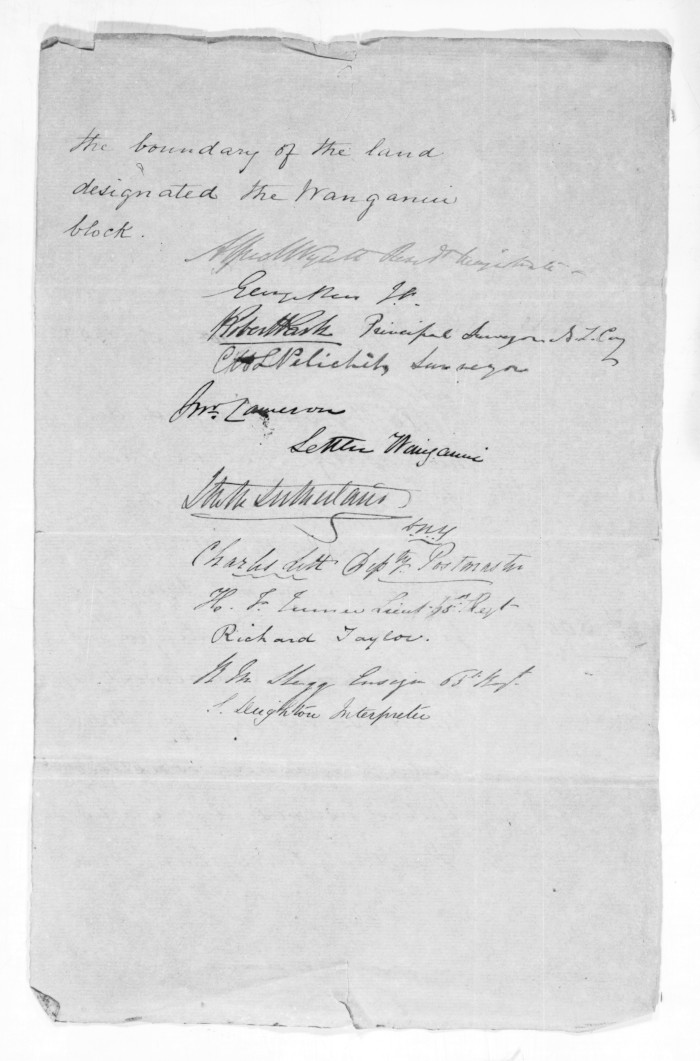 the boundary of the land
designated the Wanganui
block.
Alfred Wyatt Resdt Magistrate
George Rees J.P.
Robert Park Principal Surveyor N.Z. Coy
Pelichet, Surveyor
Jno. Cameron
Settler Wanganui
Sutherland
Charles Depty Postmaster
H. F. Turner Lieut. 65th Regt
Richard Taylor.
Ensign 65th Regt.
S. Deighton Interpreter